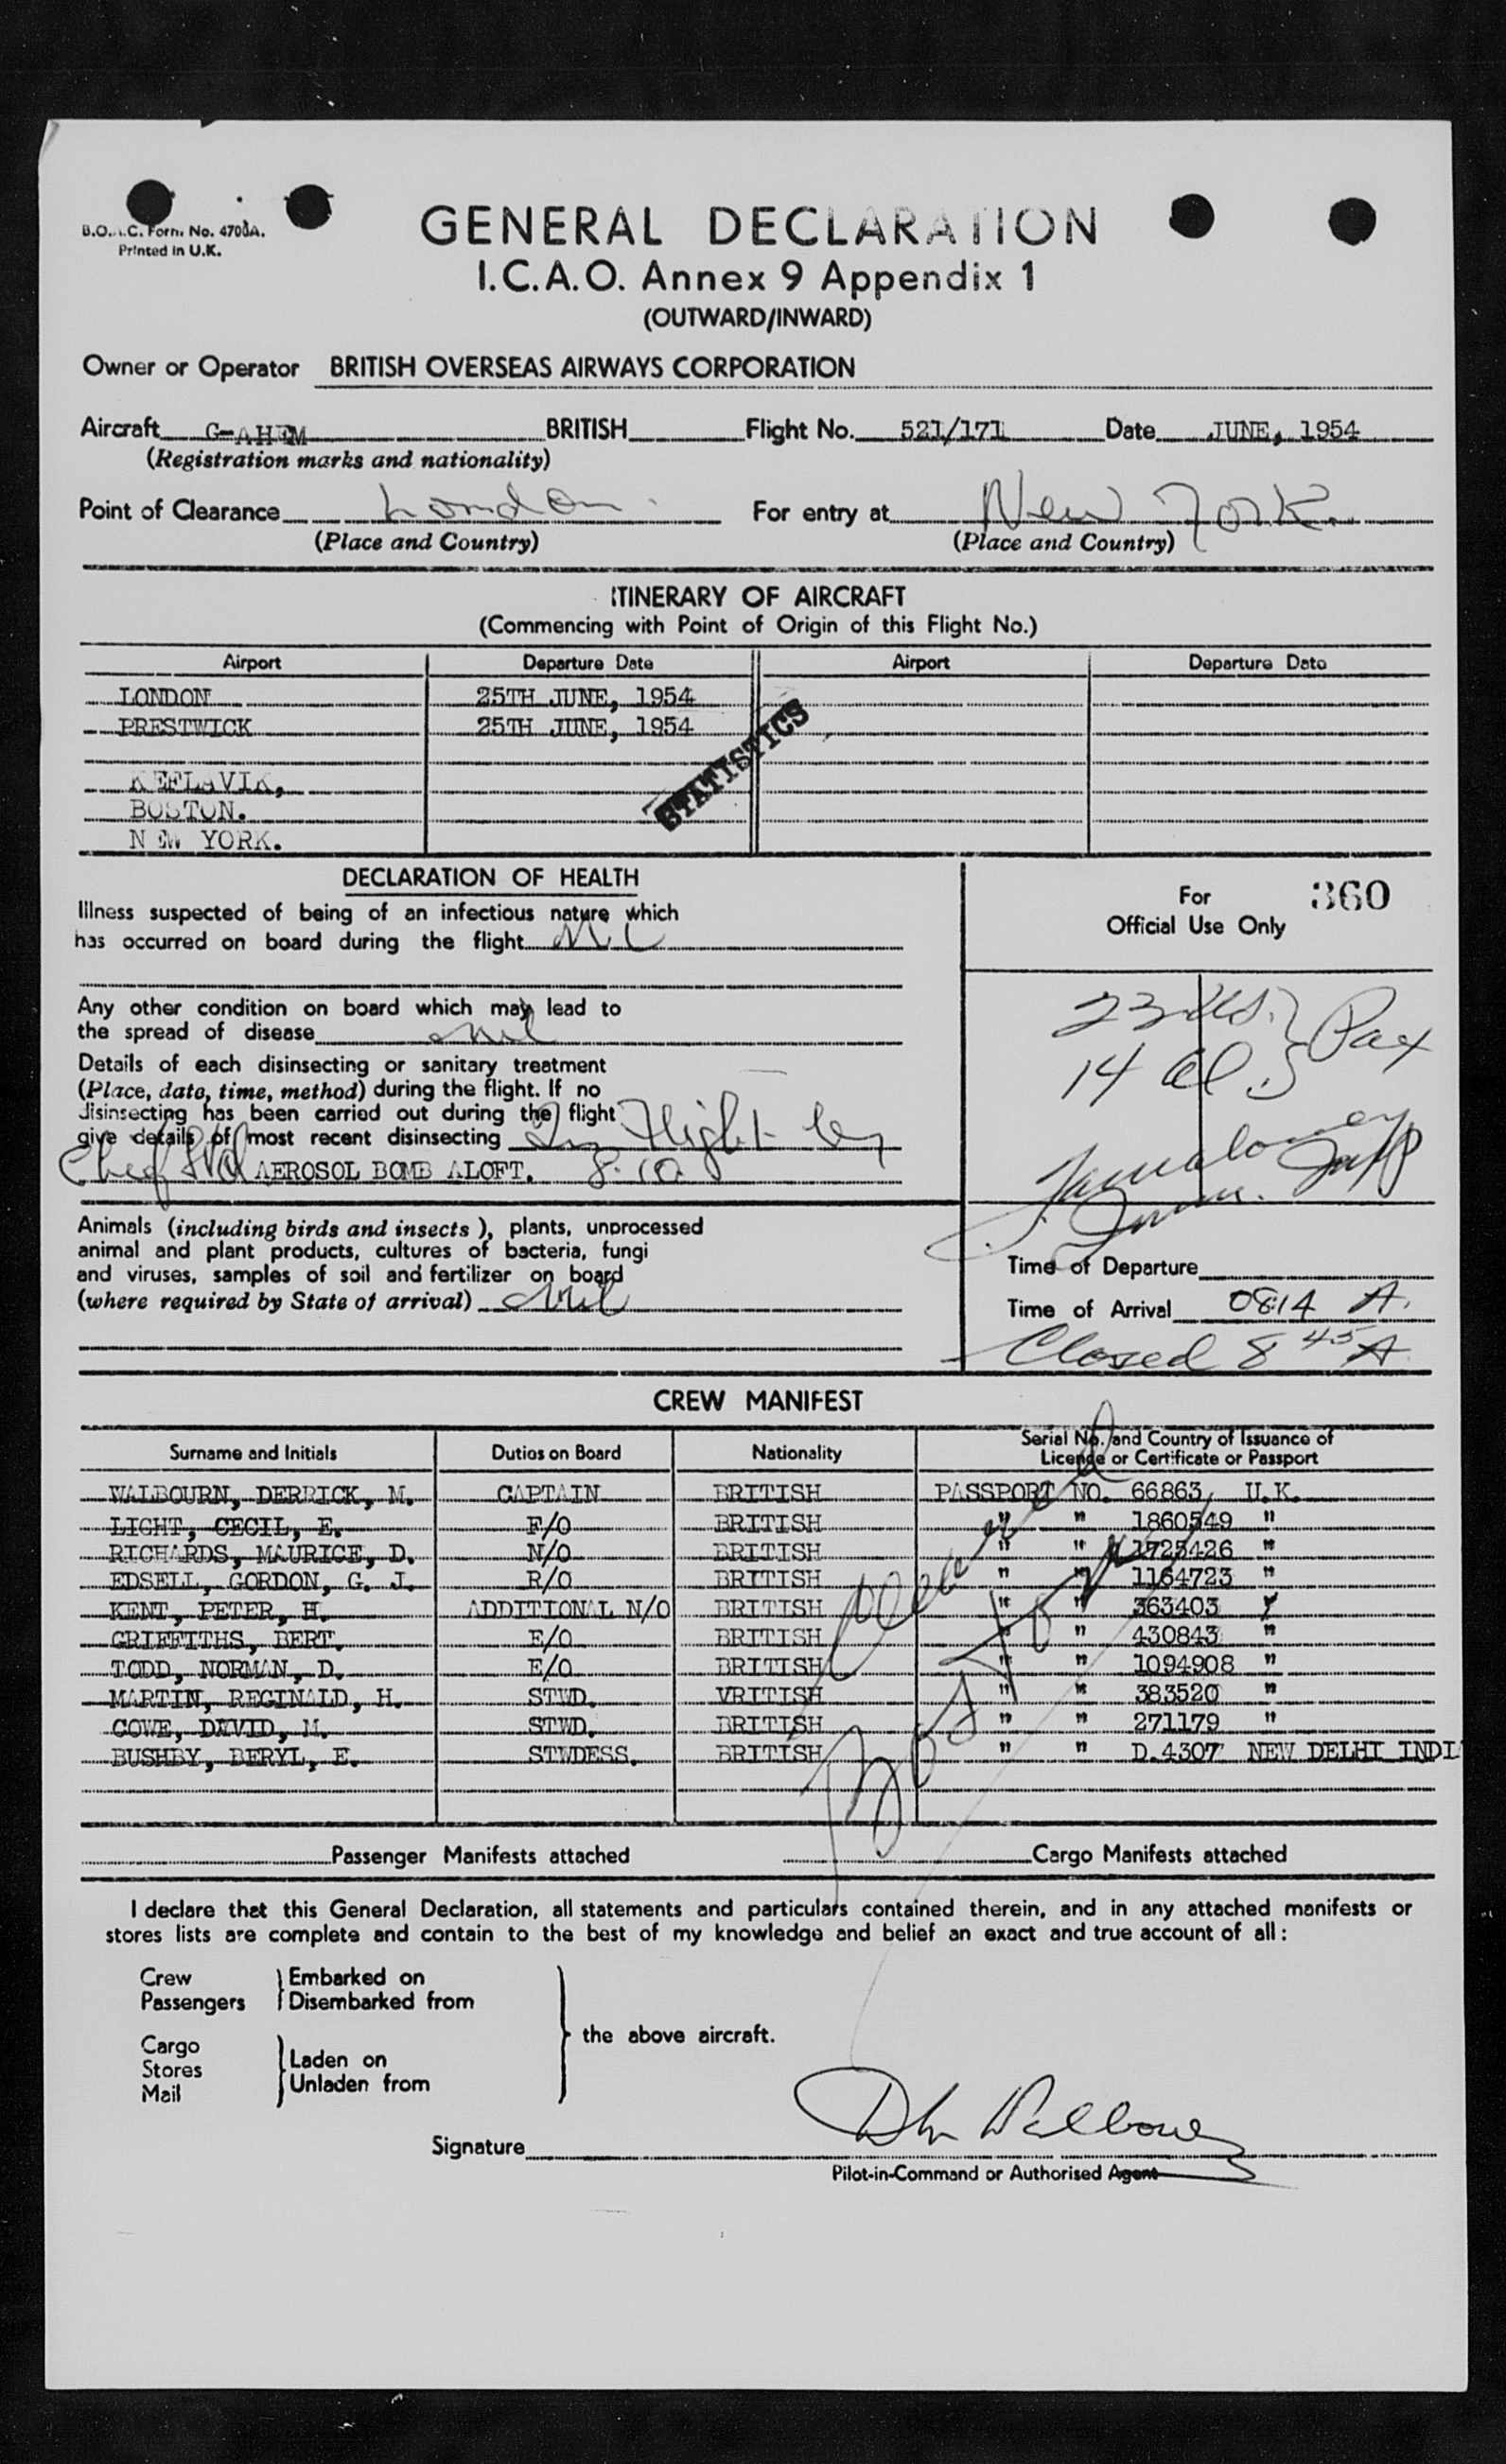 B.O.A.C. Form No. 4700A.
Printed in U.K.
GENERAL DECLARATION
I.C.A.O. Annex 9 Appendix 1
(OUTWARD/INWARD)
Owner or Operator BRITISH OVERSEAS AIRWAYS CORPORATION
Aircraft G-AHEM BRITISH Flight No. 521/171 Date JUNE, 1954
(Registration marks and nationality)
Point of Clearance London For entry at New York.
(Place and Country) (Place and Country)
ITINERARY OF AIRCRAFT
(Commencing with Point of Origin of this Flight No.)
Airport Departure Date Airport Departure Date
LONDON 25TH JUNE, 1954
PRESTWICK 25TH JUNE, 1954
STATISTICS
KEFLAVIK,
BOSTON.
NEW YORK.
DECLARATION OF HEALTH
Illness suspected of being of an infectious nature which
has occurred on board during the flight Nil
Any other condition on board which may lead to
the spread of disease nil
Details of each disinsecting or sanitary treatment
(Place, date, time, method) during the flight. If no
disinsecting has been carried out during the flight
give details of most recent disinsecting In Flight by
Chief Std AEROSOL BOMB ALOFT. 8.10
Animals (including birds and insects), plants, unprocessed
animal and plant products, cultures of bacteria, fungi
and viruses, samples of soil and fertilizer on board
(where required by State of arrival) Nil
For 360
Official Use Only
23 US. } Pax
14 Al.
Time of Departure
Time of Arrival 0814 A.
Closed 8 45 A
CREW MANIFEST
Surname and Initials Duties on Board Nationality Serial No. and Country of Issuance of
Licence or Certificate or Passport
WALBOURN, DERRICK, M. CAPTAIN BRITISH PASSPORT NO. 66863, U.K.
LIGHT, CECIL, E. F/O BRITISH " " 1860549 "
RICHARDS, MAURICE, D. N/O BRITISH " " 1725426 "
EDSELL, GORDON, G. J. R/O BRITISH " " 1164723 "
KENT, PETER, H. ADDITIONAL N/O BRITISH " " 363403 "
GRIFFITHS, BERT. E/O BRITISH " " 430843 "
TODD, NORMAN, D. E/O BRITISH " " 1094908 "
MARTIN, REGINALD, H. STWD. VRITISH " " 383520 "
COWE, DAVID, M. STWD. BRITISH " " 271179 "
BUSHBY, BERYL, E. STWDESS. BRITISH " " D.4307 NEW DELHI INDI
Passenger Manifests attached Cargo Manifests attached
I declare that this General Declaration, all statements and particulars contained therein, and in any attached manifests or
stores lists are complete and contain to the best of my knowledge and belief an exact and true account of all:
Crew } Embarked on
Passengers } Disembarked from
the above aircraft.
Cargo
Stores } Laden on
Mail } Unladen from
Signature DM Walbourn
Pilot-in-Command or Authorised Agent